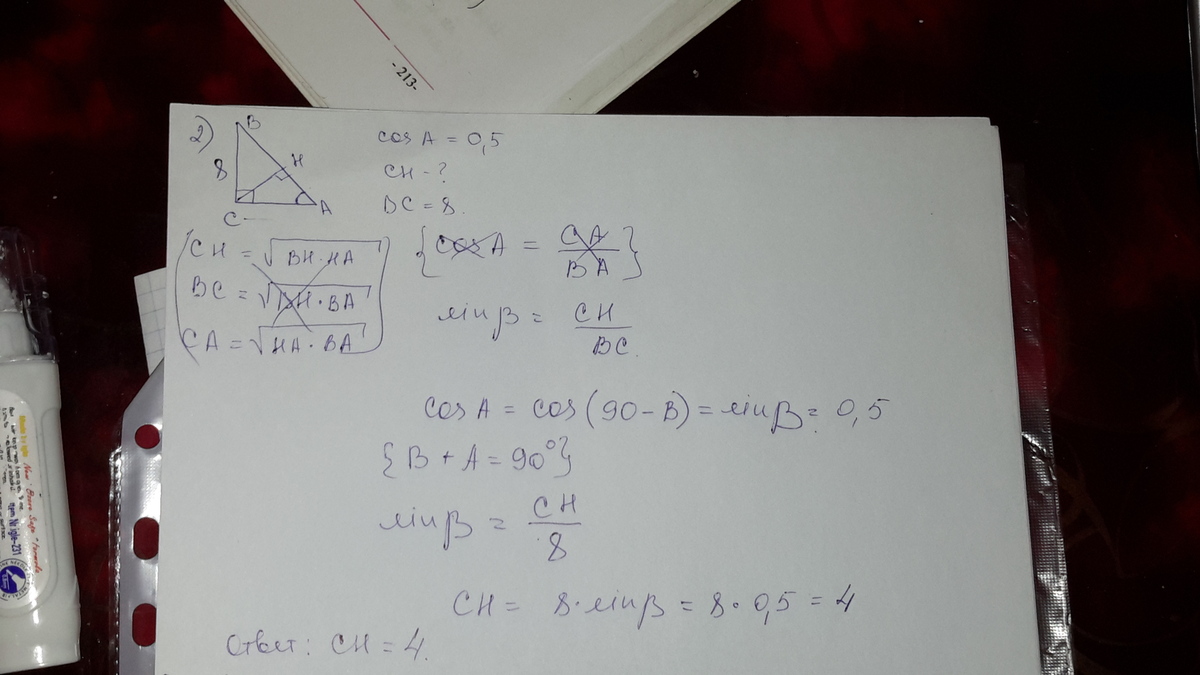 - 213-
2)
B
8
H
C
A
cos A = 0,5
CH - ?
BC = 8.
CH = √BH·HA
BC = √BH·BA
CA = √HA·BA
{cos A = CA/BA}
sin β = CH/BC.
cos A = cos(90 - B) = sin β = 0,5
{B + A = 90°}
sin β = CH/8
CH = 8·sin β = 8·0,5 = 4
Ответ: CH = 4.